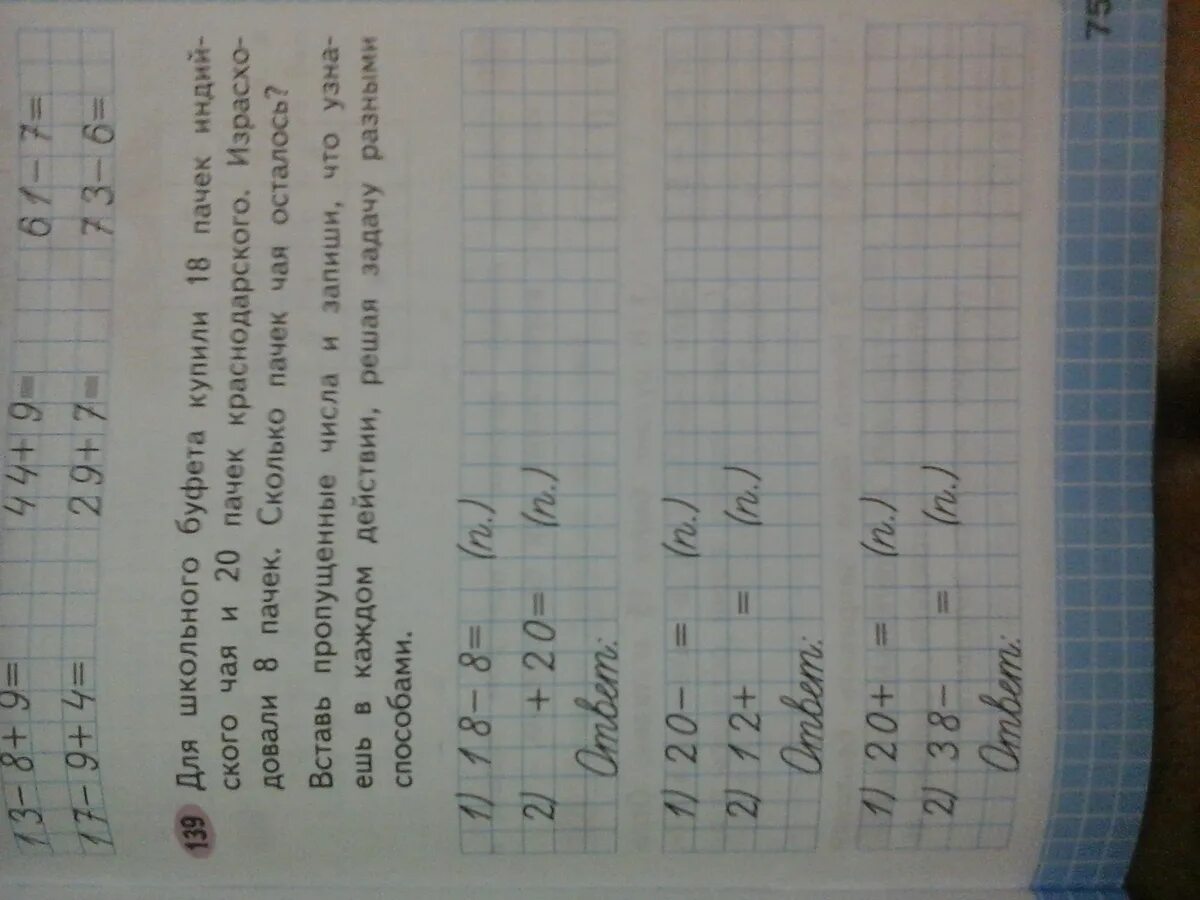 13-8+9= 44+9= 61-7=
17-9+4= 29+7= 73-6=
139 Для школьного буфета купили 18 пачек индий-
ского чая и 20 пачек краснодарского. Израсхо-
довали 8 пачек. Сколько пачек чая осталось?
Вставь пропущенные числа и запиши, что узна-
ешь в каждом действии, решая задачу разными
способами.
1) 18-8= (п.)
2) +20= (п.)
Ответ:
1) 20- = (п.)
2) 12+ = (п.)
Ответ:
1) 20+ = (п.)
2) 38- = (п.)
Ответ:
75